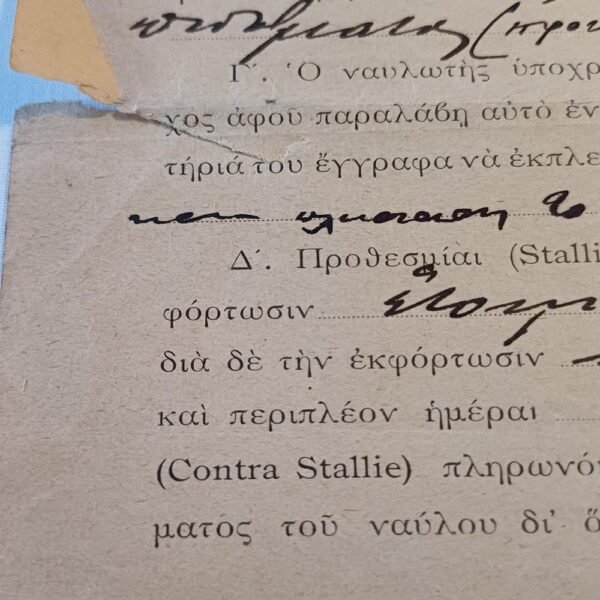 Γ΄. Ὁ ναυλωτὴς ὑποχρ
χος ἀφοῦ παραλάβῃ αὐτὸ ἐν
τήριά του ἔγγραφα νὰ ἐκπλε
Δ΄. Προθεσμίαι (Stalli
φόρτωσιν
διὰ δὲ τὴν ἐκφόρτωσιν
καὶ περιπλέον ἡμέραι
(Contra Stallie) πληρωνό
ματος τοῦ ναύλου δι' ὅ